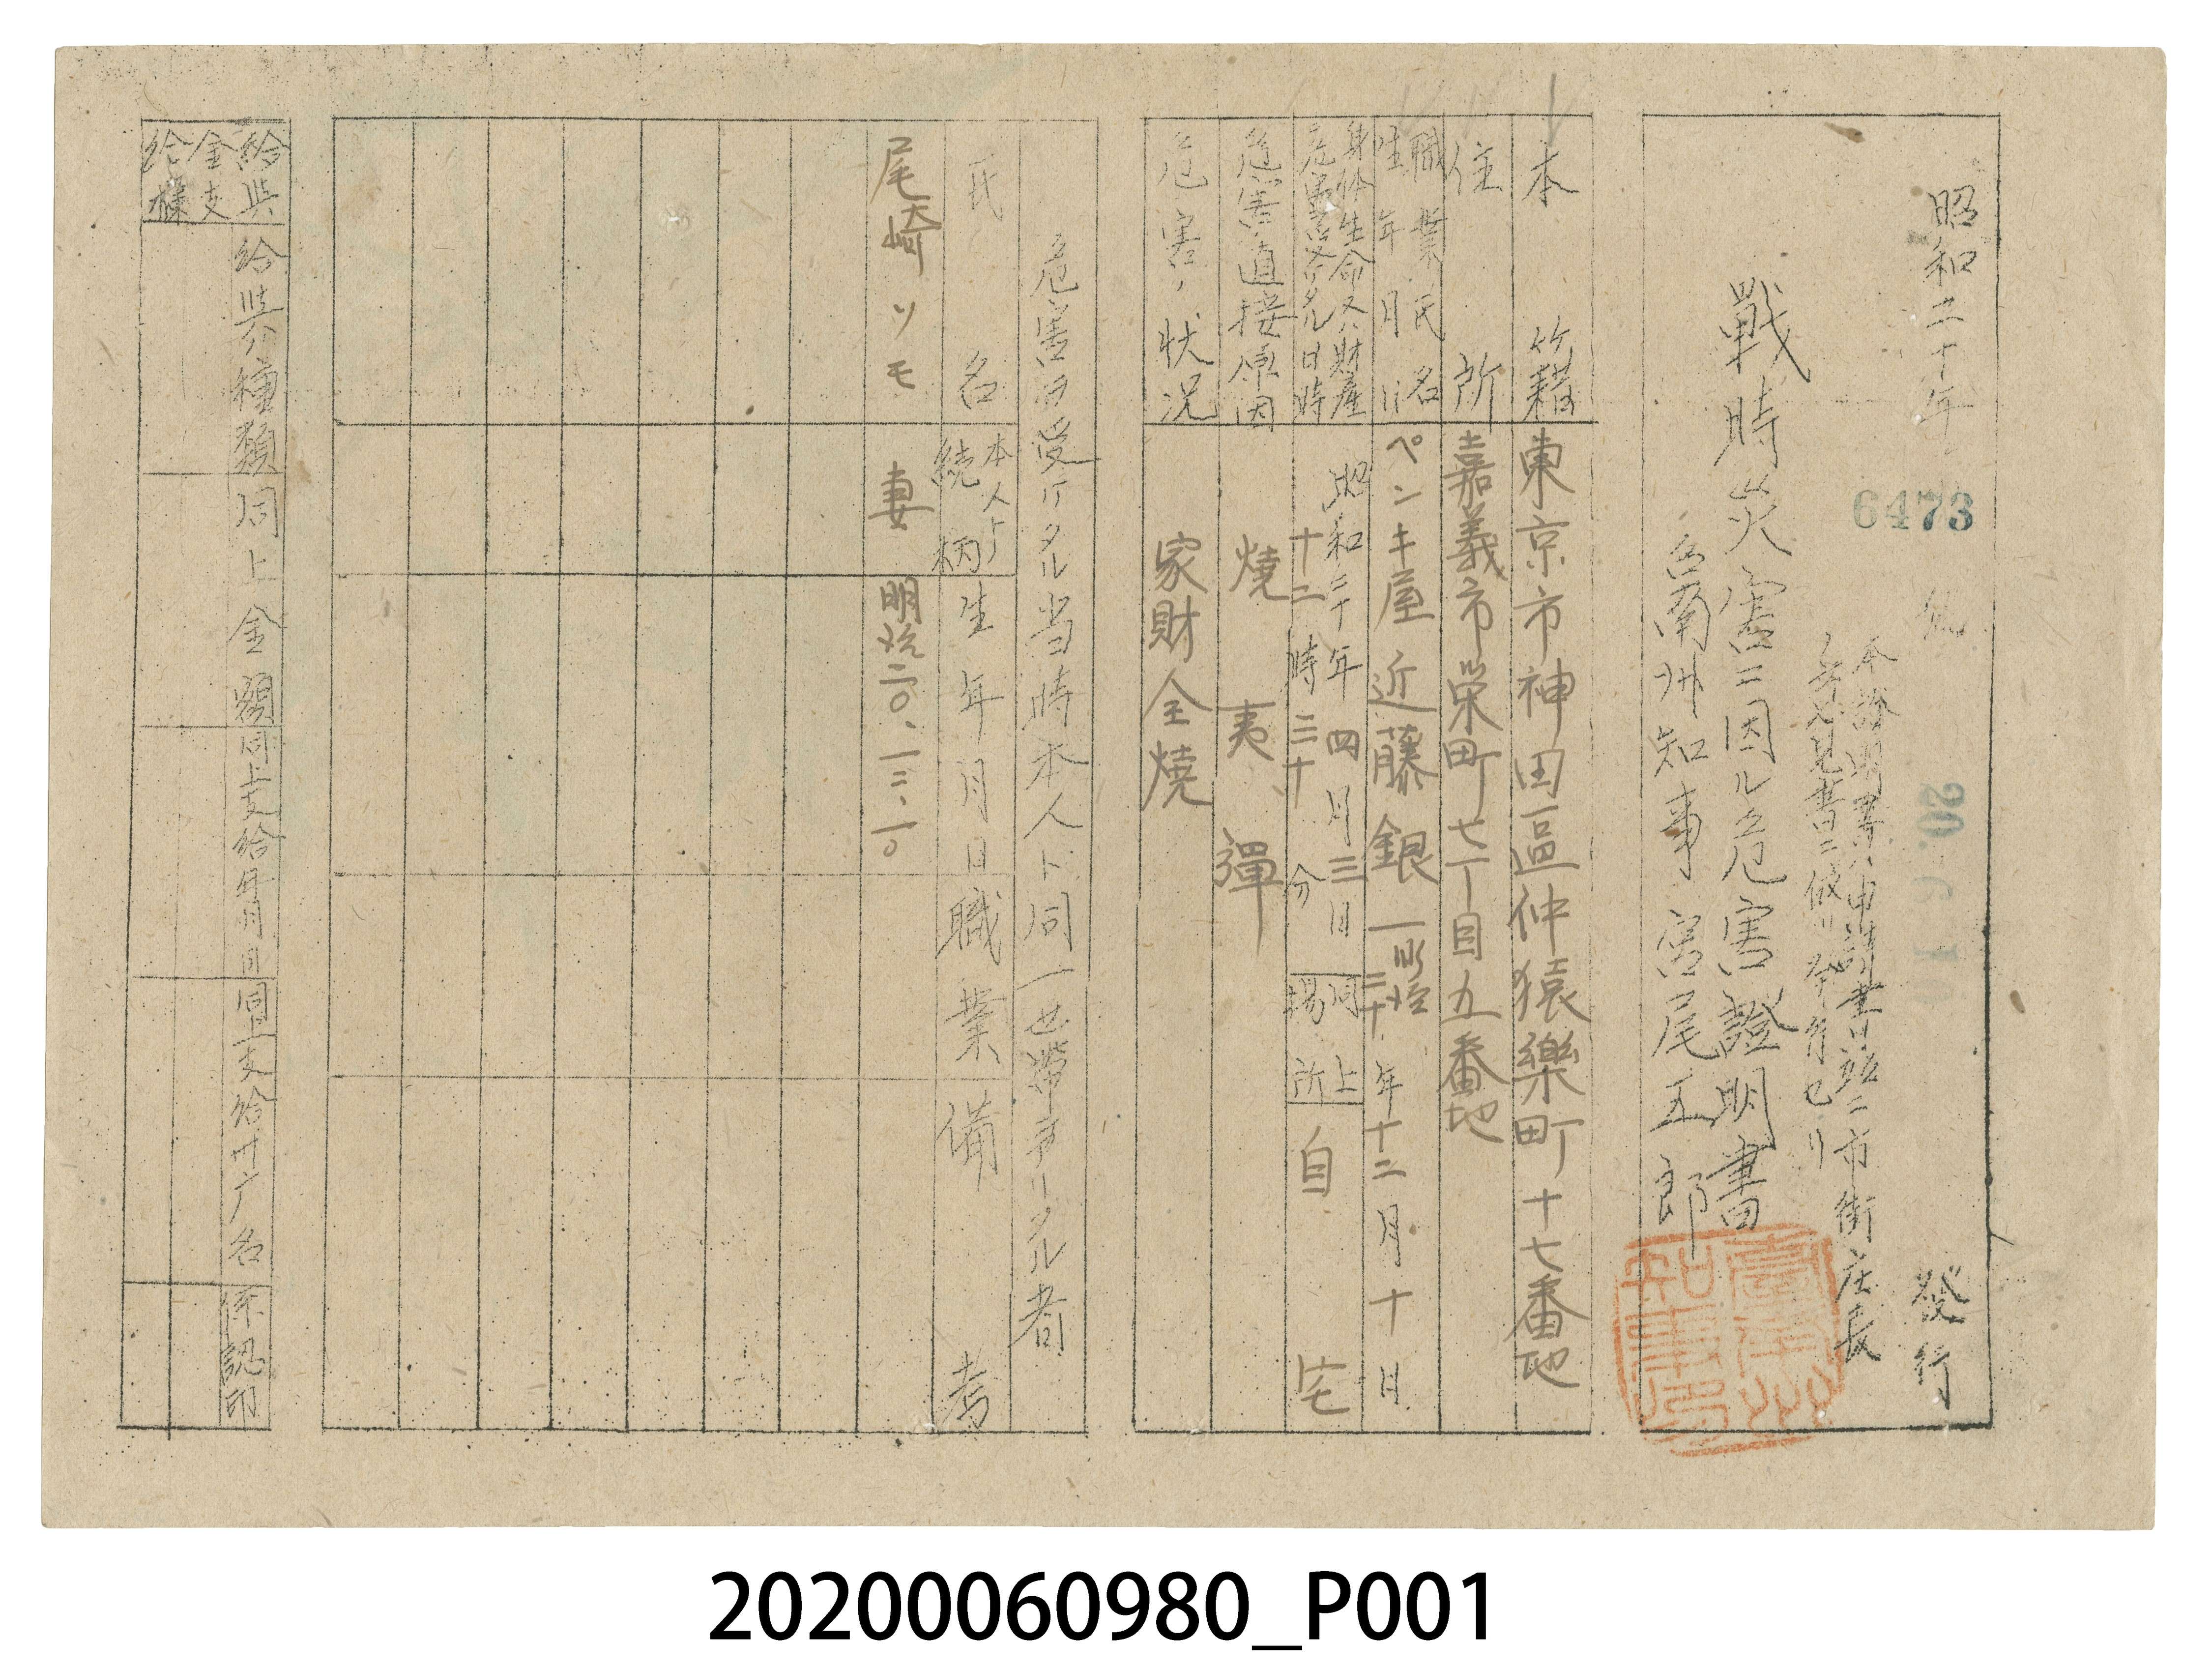 昭和二十年
6473
號
20. 6. 1
發行
本證明書ハ申請書竝ニ市街庄長
ノ意見書ニ依リ發行セリ
戰時災害ニ因ル危害證明書
台南州知事 宮尾五郎
本籍 東京市神田區仲猿樂町十七番地
住所 嘉義市榮町七丁目五番地
職業氏名
生年月日
ペンキ屋 近藤銀一 明治二十年十二月十日
身体生命又ハ財産
危害ヲ受ケタル日時
昭和二十年四月三日
十二時三十分
同上
場所
自宅
危害ノ直接原因 燒夷彈
危害ノ状況 家財全燒
危害ヲ受ケタル当時本人ト同一世帶ニアリタル者
氏名 本人トノ続柄 生年月日 職業 備考
尾崎ツモ 妻 明治二〇、一二、一〇
給與金支給欄
給與ノ種類 同上金額 同上支給年月日 同上支給廿广名 係認印
20200060980_P001